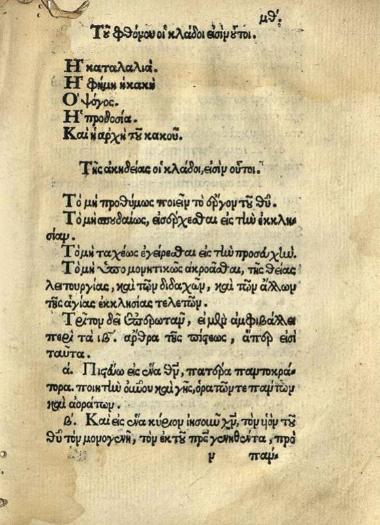 μθ´.
Τοῦ φθόνου οἱ κλάδοι εἰσὶν οὗτοι.
Ἡ καταλαλιά.
Ἡ φήμη ἡ κακὴ
Ὁ ψόγος.
Ἡ προδοσία.
Καὶ ἡ ἀρχὴ τοῦ κακοῦ.
Τῆς ἀκηδείας οἱ κλάδοι, εἰσὶν οὗτοι.
Τὸ μὴ προθύμως ποιεῖν τὸ ἔργον τοῦ θῦ.
Τὸ μὴ σπουδαίως, εἰσέρχεσθαι εἰς τὴν ἐκκλη-
σίαν.
Τὸ μὴ ταχέως ἐγείρεσθαι εἰς τὴν προσευχήν.
Τὸ μὴ ὑπομονητικῶς ἀκροᾶσθαι, τῆς θείας
λειτουργίας, καὶ τῶν διδαχῶν, καὶ τῶν ἄλλων
τῆς ἁγίας ἐκκλησίας τελετῶν.
Τρίτον δεῖ ἐπερωτᾶν, εἰ μὲν ἀμφιβάλλει
περὶ τὰ ιβ´. ἄρθρα τῆς πίστεως, ἅπερ εἰσὶ
ταῦτα.
α. Πιστεύω εἰς ἕνα θν, πατέρα παντοκρά-
τορα. ποιητὴν οὐνοῦ καὶ γῆς, ὁρατῶν τε πάντων
καὶ ἀοράτων.
β´. Καὶ εἰς ἕνα κύριον ἰησοῦν χν, τὸν υἱὸν τοῦ
θῦ τὸν μονογενῆ, τὸν ἐκ τοῦ πρς γεννηθέντα, πρὸ
ν παν-